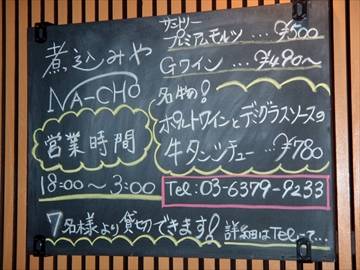 煮込みや
NA-CHO
営業時間
18:00〜3:00
サントリー
プレミアムモルツ…¥500
Gワイン…¥490〜
名物の!
ポルトワインとデミグラスソースの
牛タンシチュー…¥780
Tel:03-6379-9233
7名様より貸切できます!詳細はTelにて…